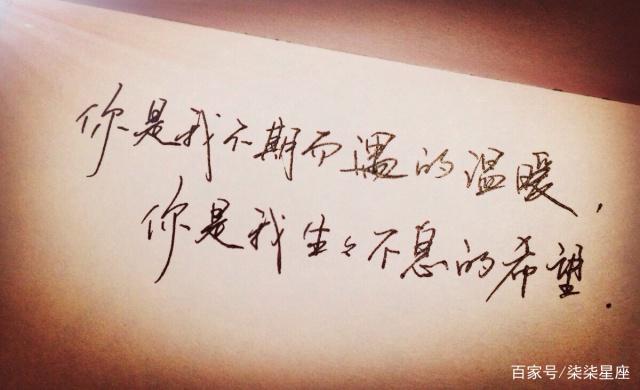 你是我不期而遇的温暖，
你是我生々不息的希望．
百家号/柒柒星座